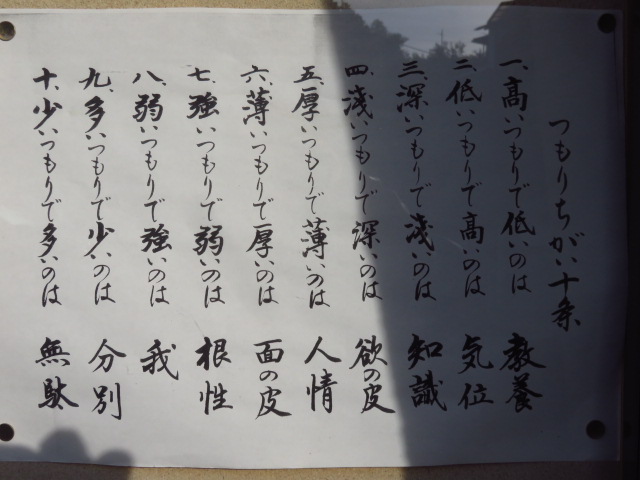 つもりちがい十条
一、高いつもりで低いのは 教養
二、低いつもりで高いのは 気位
三、深いつもりで浅いのは 知識
四、浅いつもりで深いのは 欲の皮
五、厚いつもりで薄いのは 人情
六、薄いつもりで厚いのは 面の皮
七、強いつもりで弱いのは 根性
八、弱いつもりで強いのは 我
九、多いつもりで少いのは 分別
十、少いつもりで多いのは 無駄